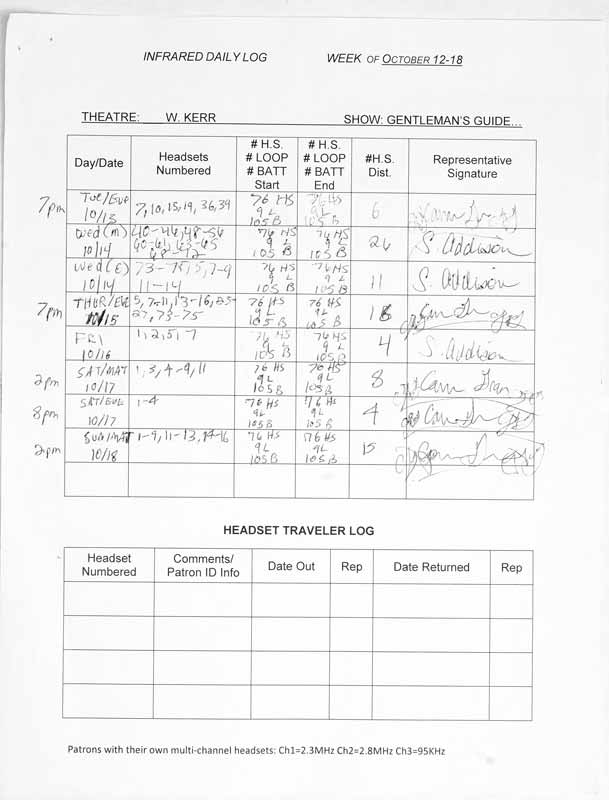 INFRARED DAILY LOG WEEK OF OCTOBER 12-18
THEATRE: W. KERR SHOW: GENTLEMAN'S GUIDE...
Day/Date
Headsets
Numbered
# H.S.
# LOOP
# BATT
Start
# H.S.
# LOOP
# BATT
End
#H.S.
Dist.
Representative
Signature
7pm
Tue/Eve
10/13
7,10,15,19,36,39
76 HS
9L
105B
76 HS
9L
105B
6
Wed (m)
10/14
40-46,48-56
60-61,63-65
68-72
76 HS
9 L
105 B
76 HS
9 L
105 B
26
S. Addison
Wed (E)
10/14
73-75,5,7-9
11-14
76 HS
9 L
105 B
76 HS
9 L
105 B
11
S. Addison
7pm
THUR/EVE
10/15
5,7-11,13-16,25-
27,73-75
76 HS
9L
105B
76 HS
9L
105B
FRI
10/16
1,2,5,7
76 HS
9 L
105 B
76 HS
9 L
105 B
4
S. Addison
2pm
SAT/MAT
10/17
1,3,4-9,11
76 HS
9L
105B
76 HS
9L
105B
8
8pm
SAT/EVE
10/17
1-4
76 HS
9L
105B
76 HS
9L
105B
4
2pm
SUN/MAT
10/18
1-9,11-13,14-16
76 HS
9L
105B
76 HS
9L
105B
15
HEADSET TRAVELER LOG
Headset
Numbered
Comments/
Patron ID Info
Date Out
Rep
Date Returned
Rep
Patrons with their own multi-channel headsets: Ch1=2.3MHz Ch2=2.8MHz Ch3=95KHz